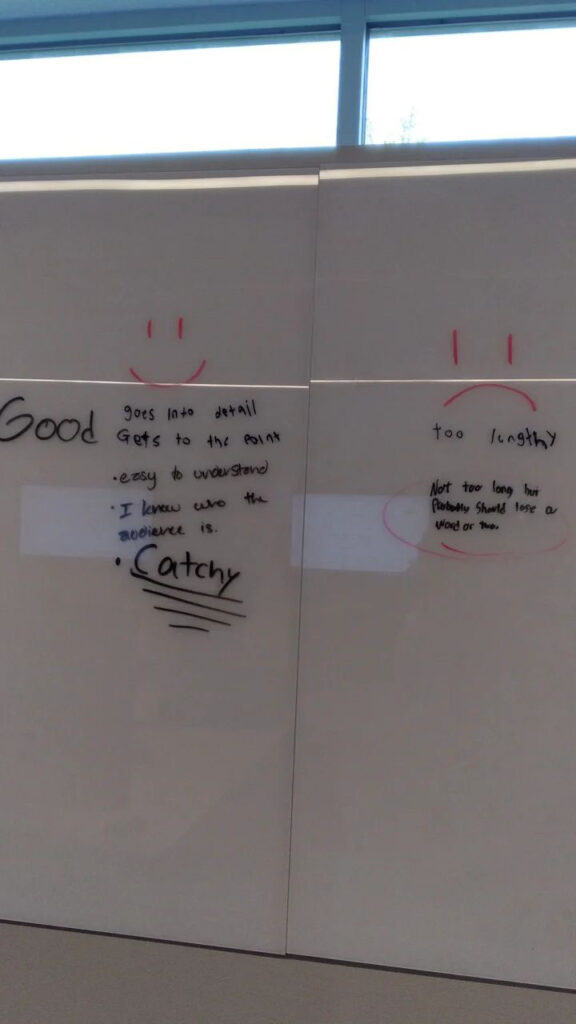 Good
goes into detail
Gets to the point
• easy to understand
• I know who the
audience is.
• Catchy
too lengthy
Not too long but
Probably should lose a
word or two.